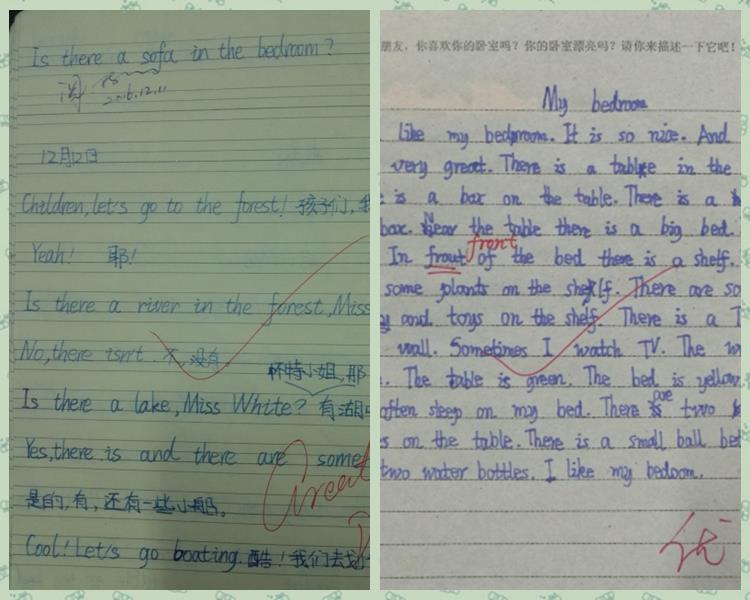 Is there a sofa in the bedroom?
2016.12.11
12月12日
Children, let's go to the forest! 孩子们,
Yeah! 耶!
Is there a river in the forest, Miss
No, there isn't. 不, 没有.
怀特小姐, 那
Is there a lake, Miss White? 有湖
Yes, there is and there are some
是的, 有, 还有一些小船.
Great
Cool! Let's go boating. 酷! 我们去划
朋友, 你喜欢你的卧室吗? 你的卧室漂亮吗? 请你来描述一下它吧!
My bedroom
like my bedroom. It is so nice. And
very great. There is a table in the
is a box on the table. There is a
box. Near the table there is a big bed.
front
In frout of the bed there is a shelf.
some plants on the shelf. There are so
and toys on the shelf. There is a T
wall. Sometimes I watch TV. The w
. The table is green. The bed is yellow.
often sleep on my bed. There are two
s on the table. There is a small ball bet
two water bottles. I like my bedoom.
优